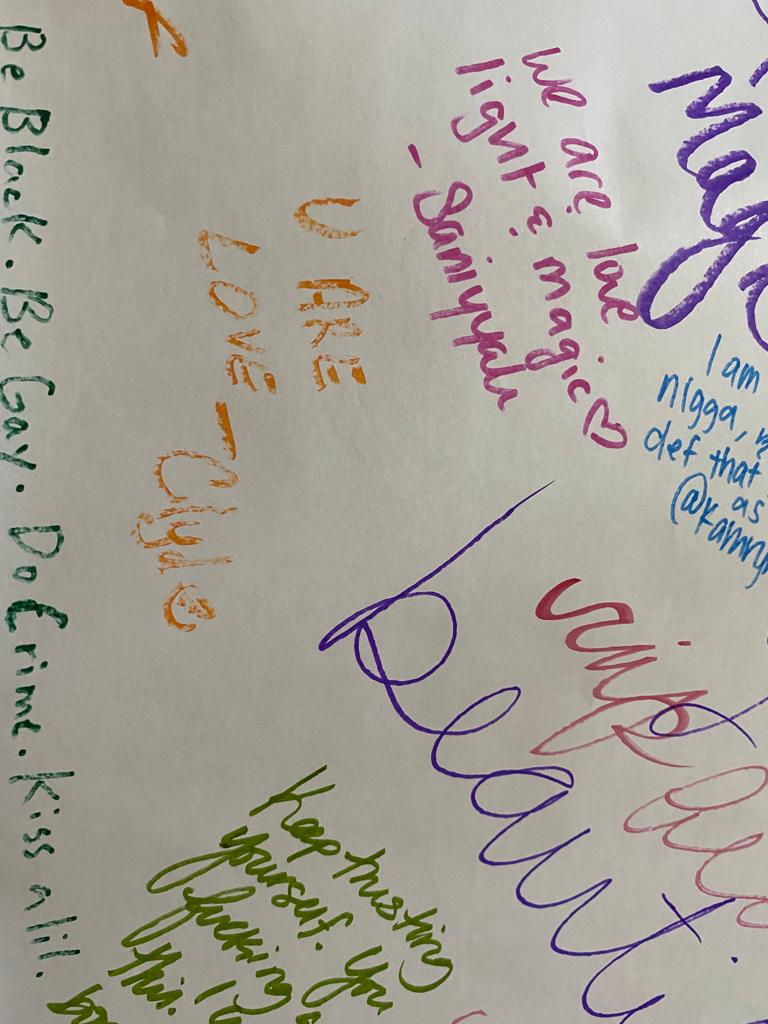 Magi
We are love
light & magic♡
- Saniyyah
U ARE
LOVE - Clyde
I am
nigga,
def that
as
Be Black. Be Gay. Do Crime. Kiss a lil.
simple
Beauti
Keep trusting
yourself. You
fucking
this. I